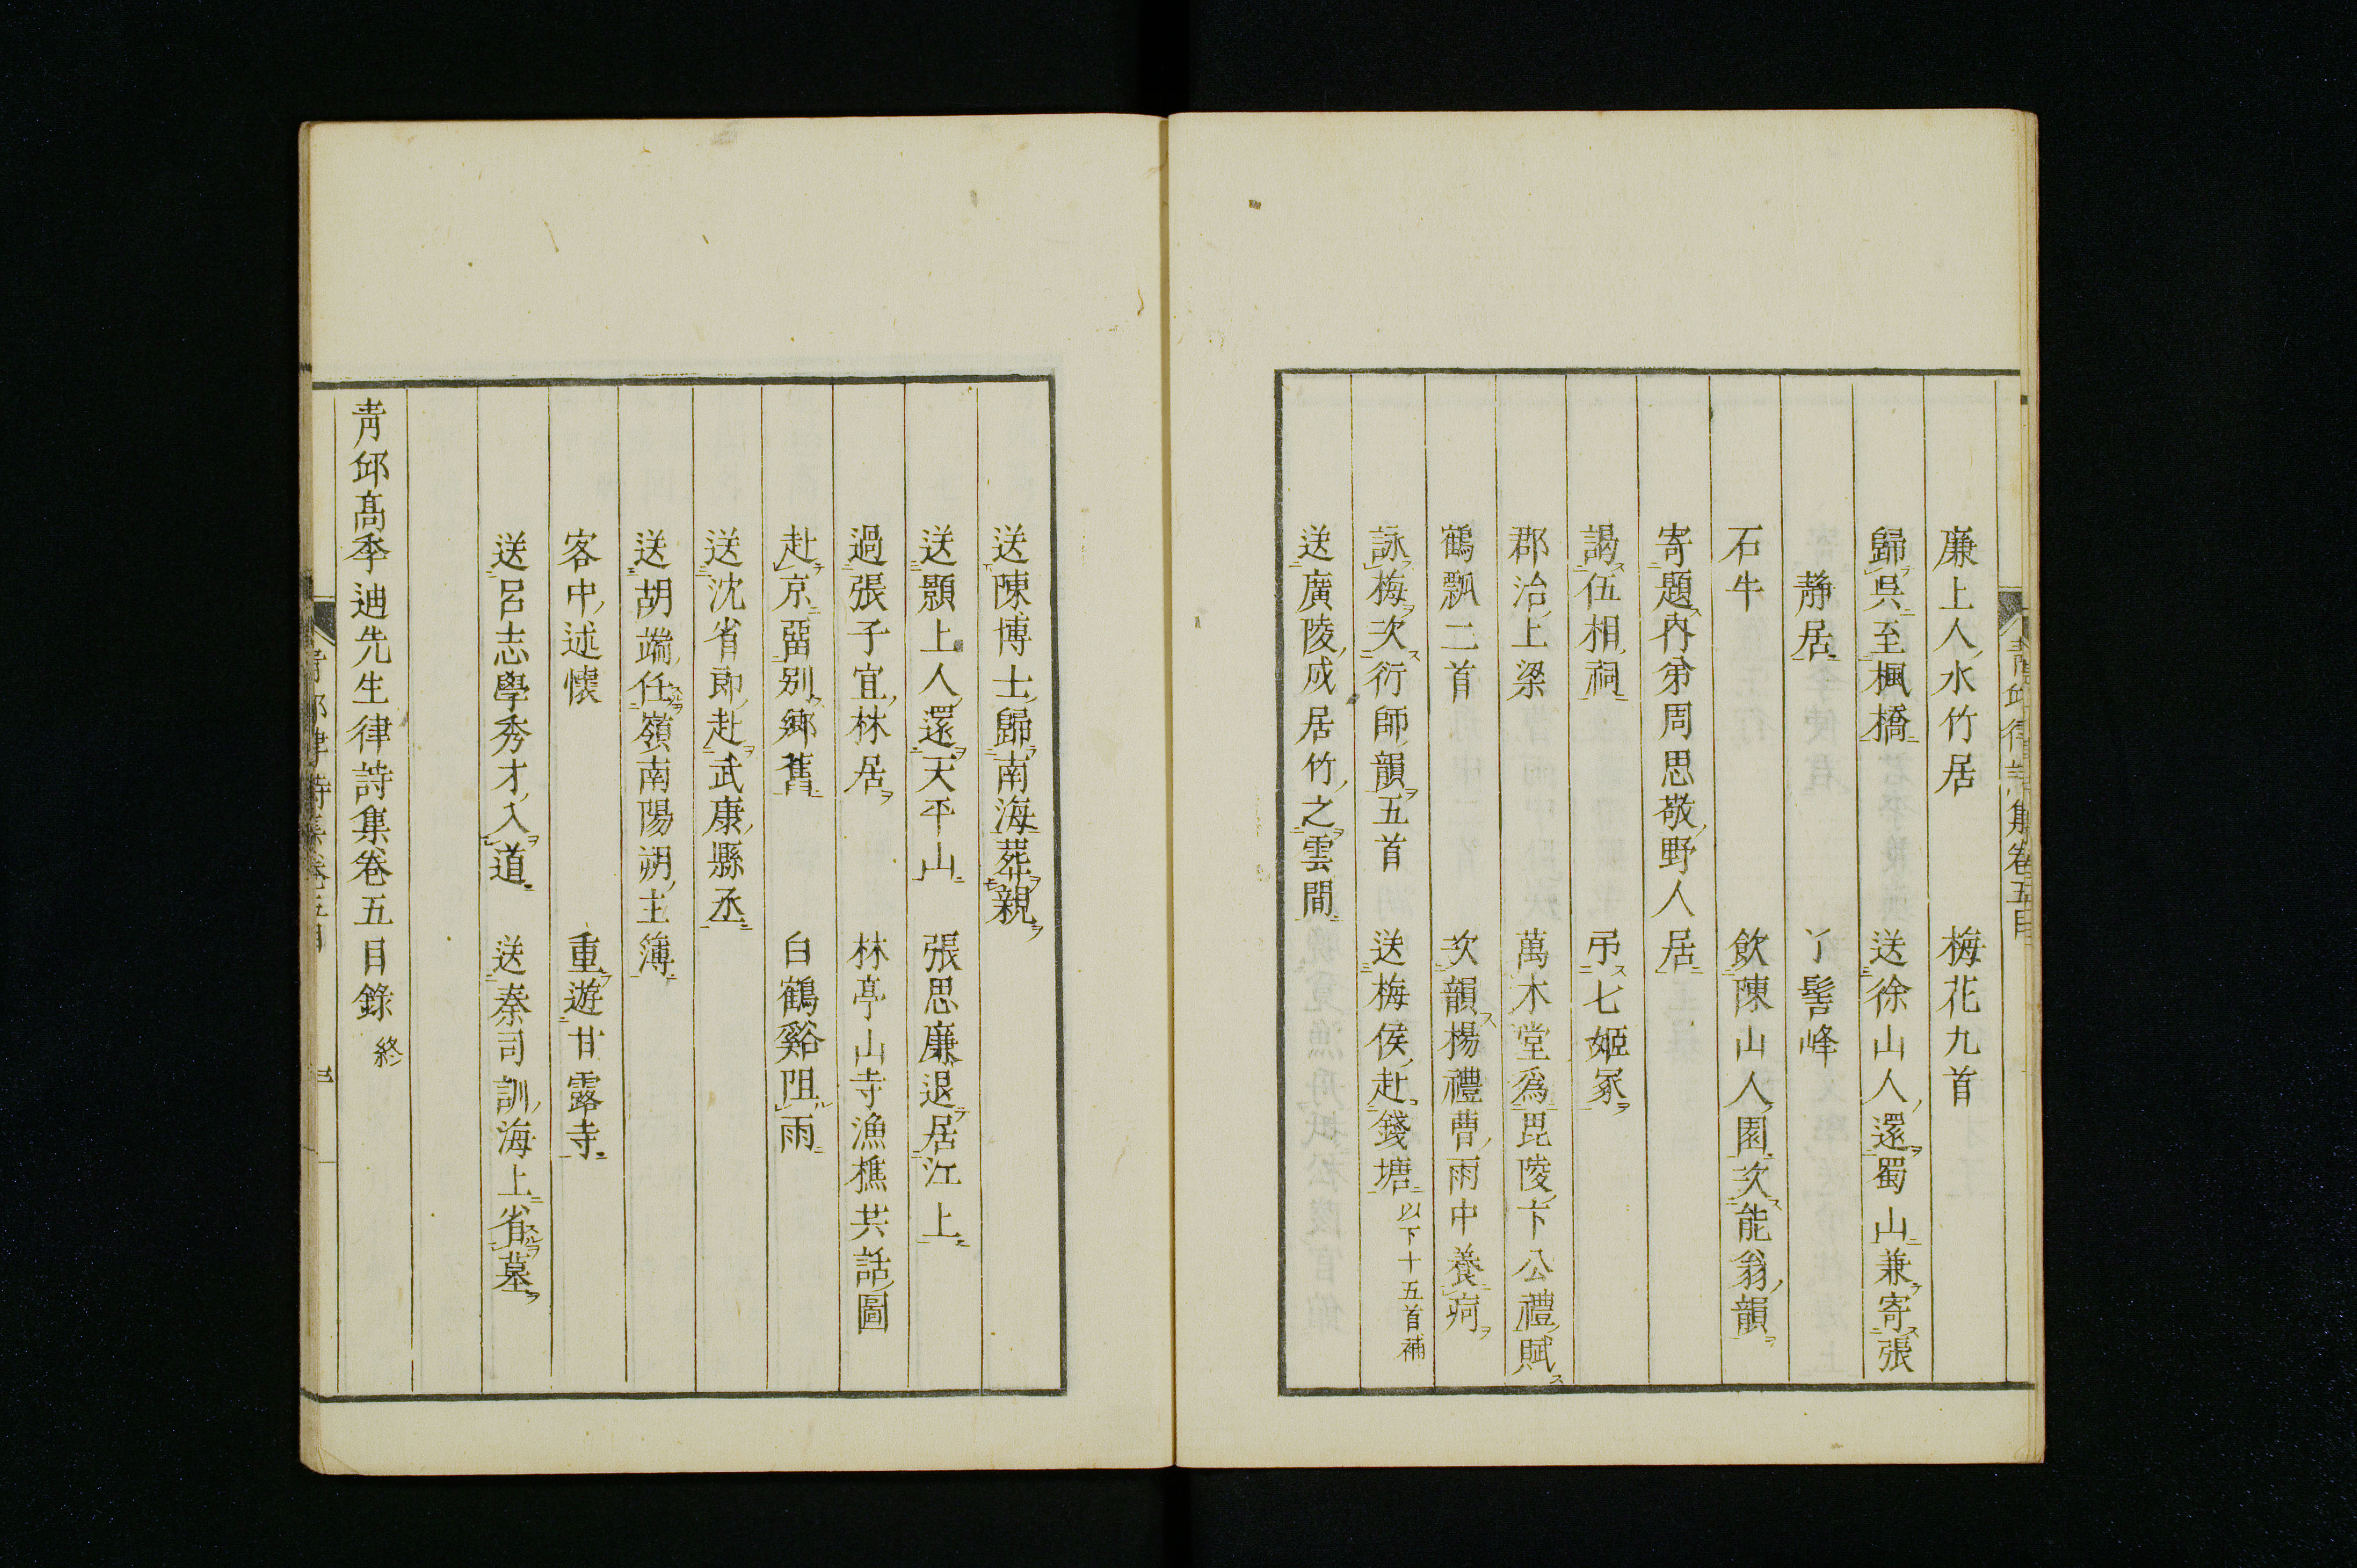 廉上人水竹居　梅花九首
歸吳至楓橋　送徐山人還蜀山兼寄張
靜居　丫髻峰
石牛　飲陳山人園次能翁韻
寄題內弟周思敬野人居
謁伍相祠　弔七姬冢
郡治上梁　萬木堂爲毘陵卞公禮賦
鶴瓢二首　次韻楊禮曹雨中養疴
詠梅次衍師韻五首　送梅侯赴錢塘以下十五首補
送廣陵成居竹之雲間
送陳博士歸南海葬親
送顥上人還天平山　張思廉退居江上
過張子宜林居　林亭山寺漁樵共話圖
赴京留別鄉舊　白鶴谿阻雨
送沈省郎赴武康縣丞
送胡端任嶺南陽朔主簿
客中述懷　重遊甘露寺
送呂志學秀才入道　送秦司訓海上省墓
青邱高季迪先生律詩集卷五目錄終